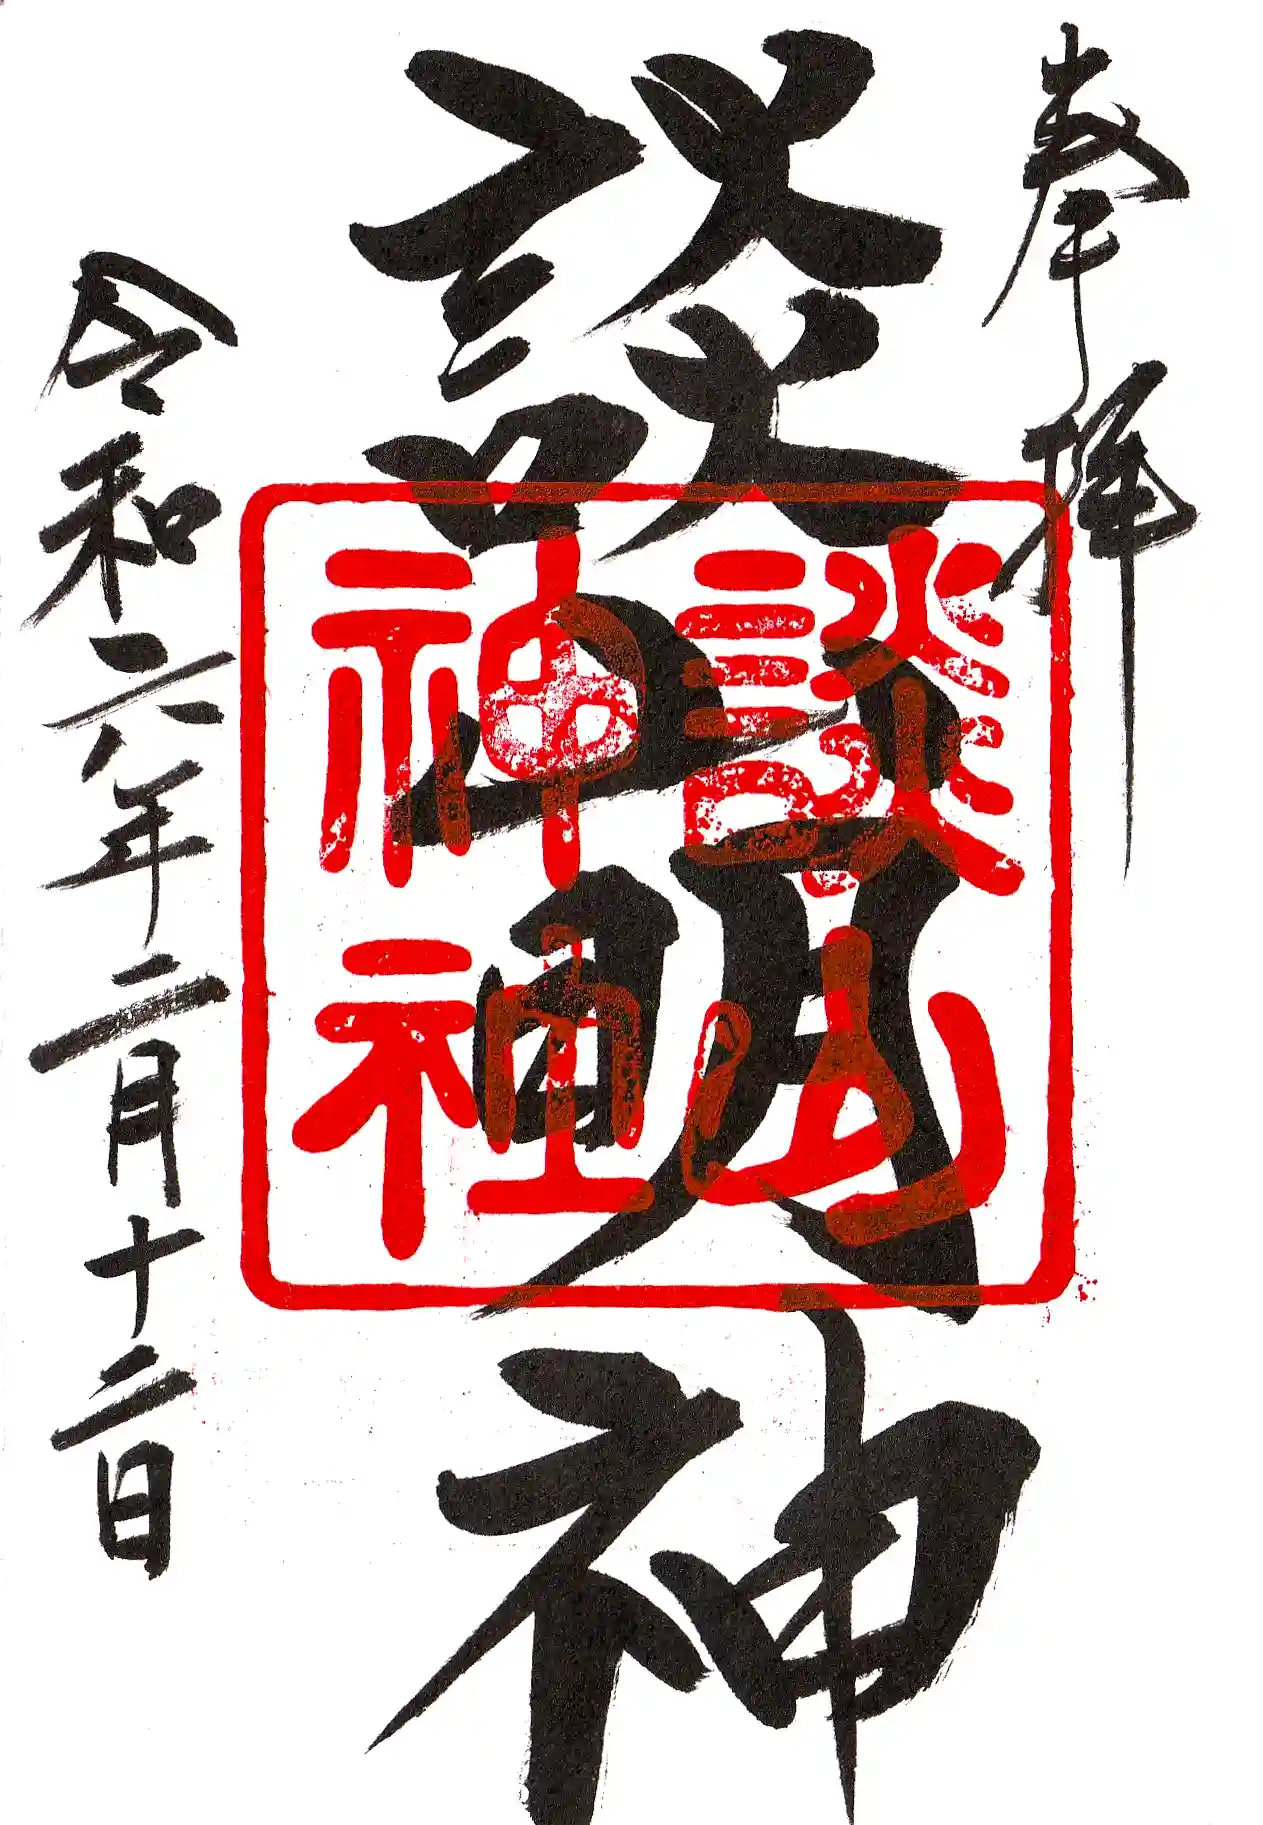 奉拝
談山明神
談山
神社
令和六年二月十二日